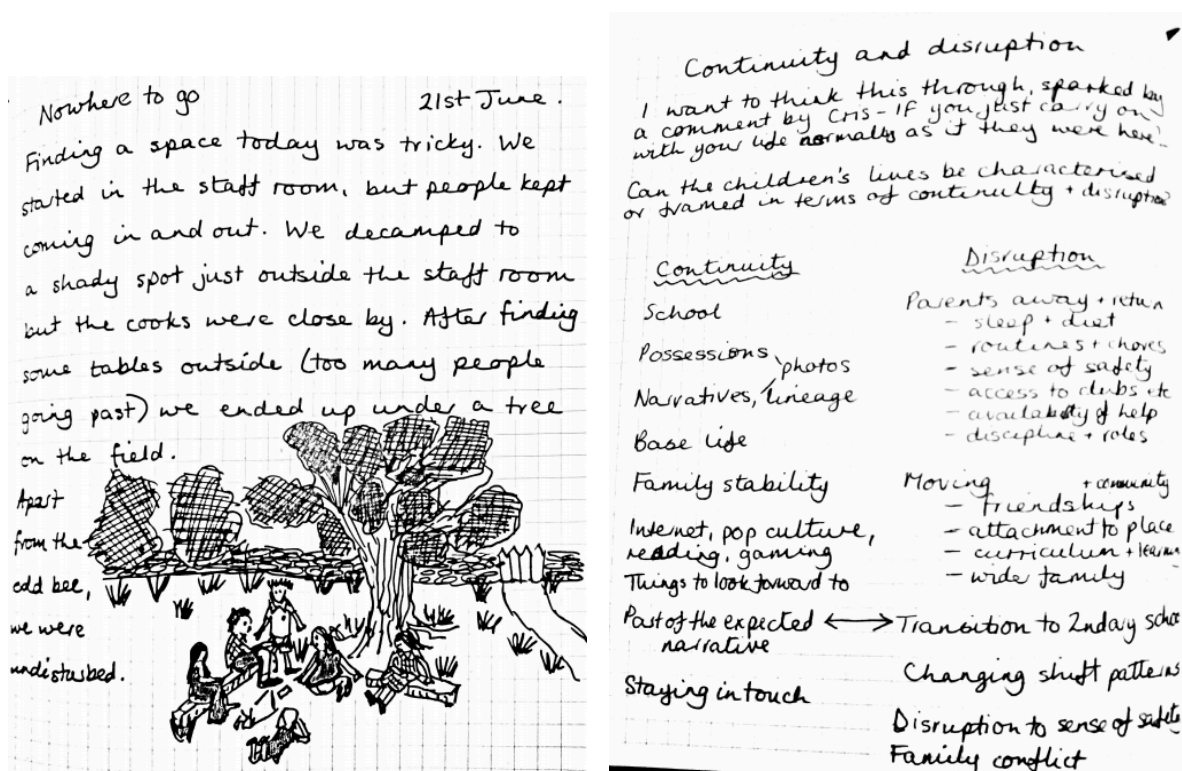 Nowhere to go 21st June.
Finding a space today was tricky. We
started in the staff room, but people kept
coming in and out. We decamped to
a shady spot just outside the staff room
but the cooks were close by. After finding
some tables outside (too many people
going past) we ended up under a tree
on the field.
Apart
from the
odd bee,
we were
undisturbed.
Continuity and disruption
I want to think this through, sparked by
a comment by Cris - If you just carry on
with your life normally as if they were here..
Can the children's lives be characterised
or framed in terms of continuity + disruption?
Continuity
School
Possessions
photos
Narratives, lineage
Base life
Family stability
Internet, pop culture,
reading, gaming
Things to look forward to
Part of the expected
narrative
Staying in touch
Disruption
Parents away + return
- sleep + diet
- routines + chores
- sense of safety
- access to clubs etc
- availability of help
- discipline + roles
Moving + community
- friendships
- attachment to place
- curriculum + learn
- wider family
Transition to 2ndary schoo
Changing shift patterns
Disruption to sense of safety
Family conflict